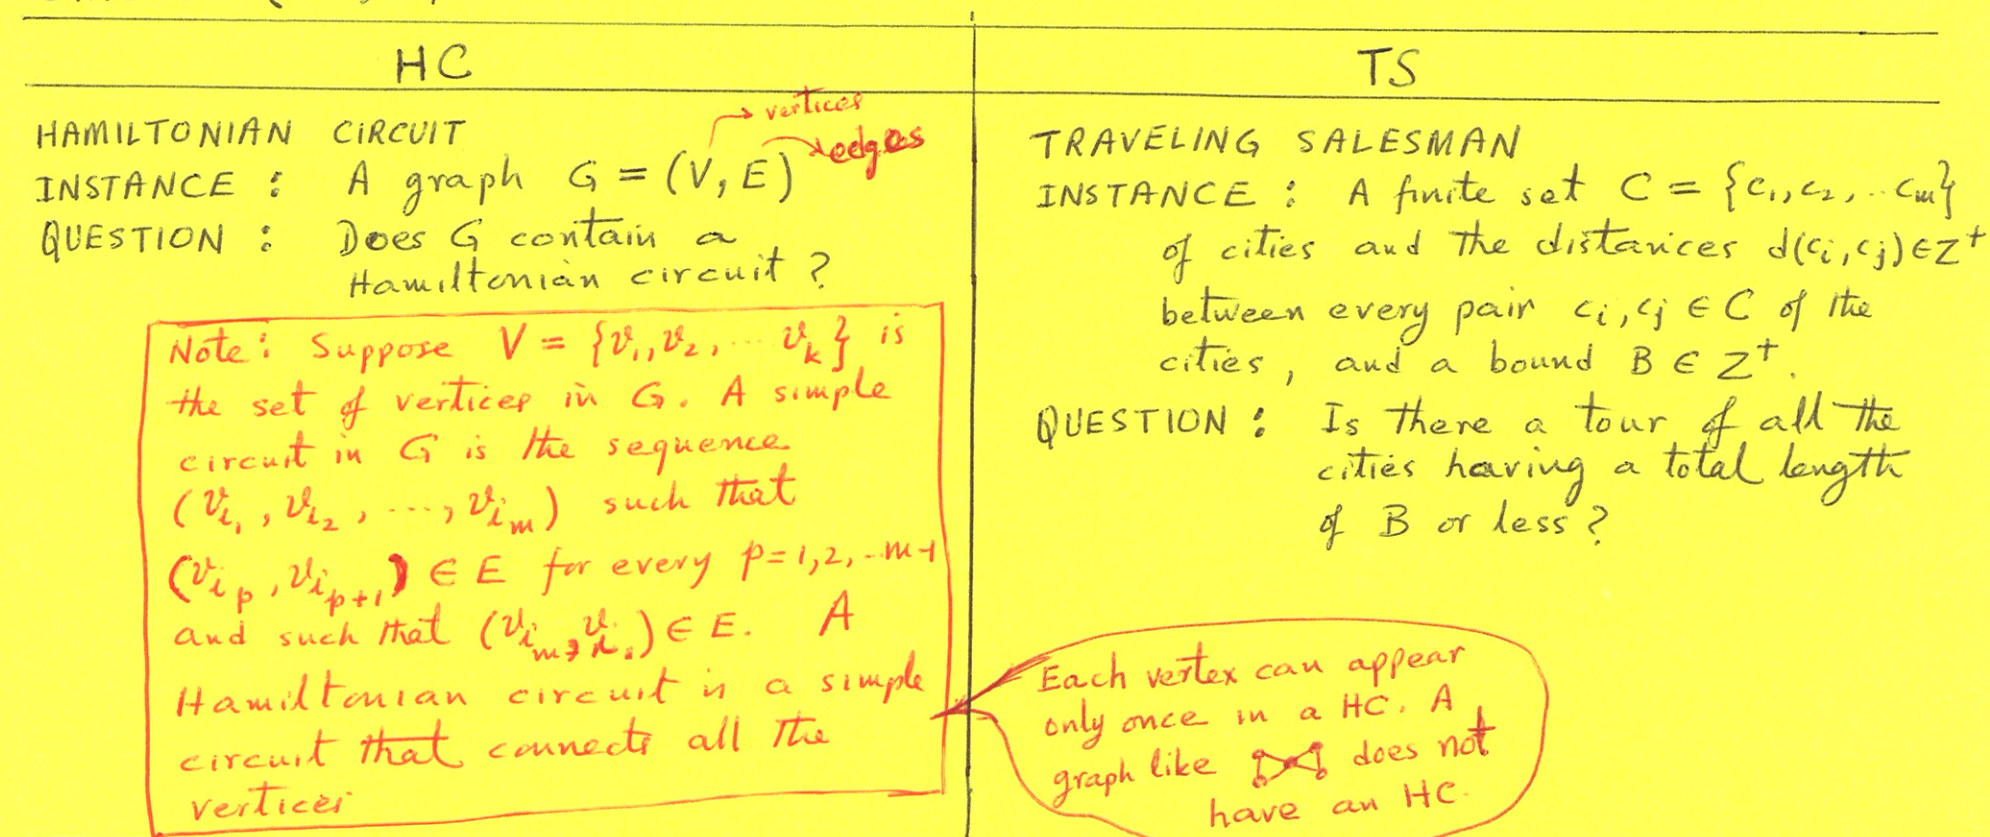 HC
vertices
edges
HAMILTONIAN CIRCUIT
INSTANCE : A graph G = (V, E)
QUESTION : Does G contain a
Hamiltonian circuit ?
Note: Suppose V = {v₁, v₂, ... vₖ} is
the set of vertices in G. A simple
circuit in G is the sequence
(v_{i₁}, v_{i₂}, ..., v_{i_m}) such that
(v_{i_p}, v_{i_{p+1}}) ∈ E for every p = 1, 2, .. m-1
and such that (v_{i_m}, v_{i₁}) ∈ E. A
Hamiltonian circuit is a simple
circuit that connects all the
vertices
TS
TRAVELING SALESMAN
INSTANCE : A finite set C = {c₁, c₂, .. cₘ}
of cities and the distances d(cᵢ, cⱼ) ∈ Z⁺
between every pair cᵢ, cⱼ ∈ C of the
cities, and a bound B ∈ Z⁺.
QUESTION : Is there a tour of all the
cities having a total length
of B or less ?
Each vertex can appear
only once in a HC. A
graph like does not
have an HC.